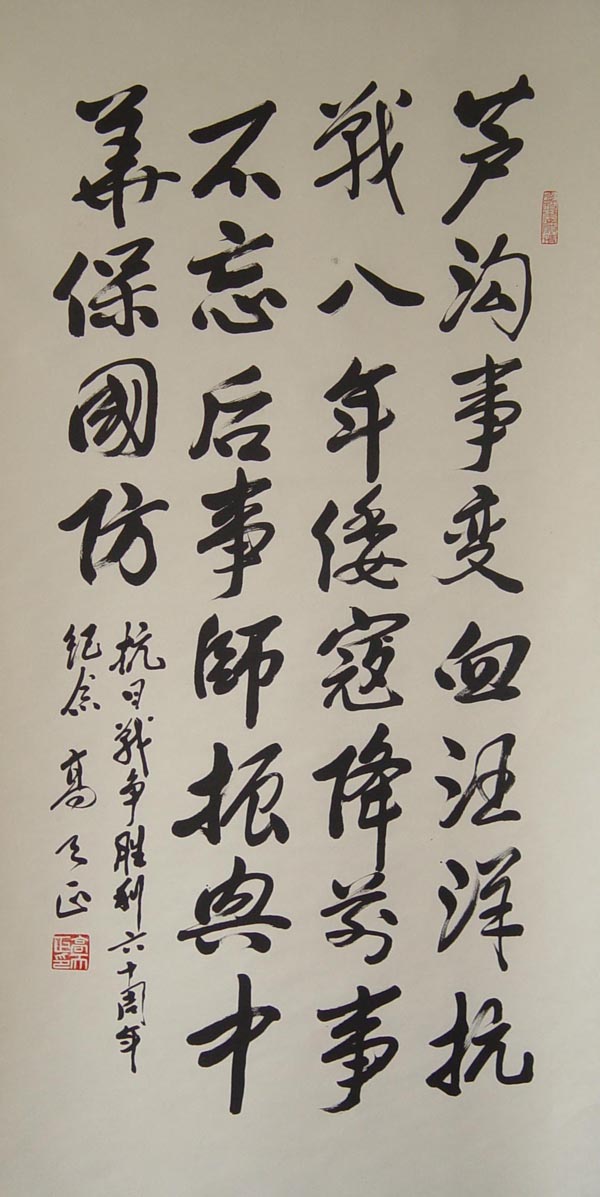 芦沟事变血汪洋抗
戰八年倭寇降前事
不忘后事師振興中
華保國防
抗日戰争胜利六十周年
纪念 高天正